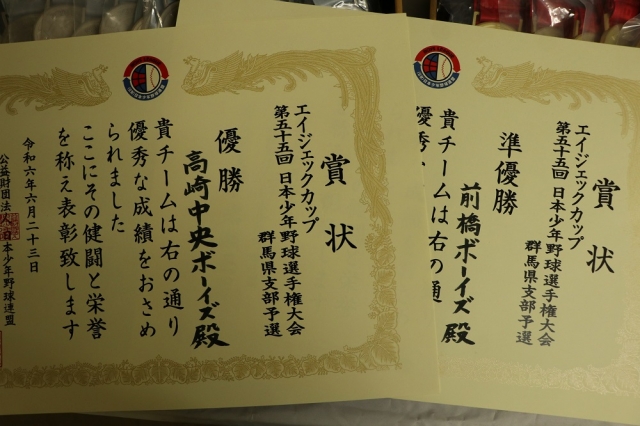 賞状
エイジェックカップ
第五十五回 日本少年野球選手権大会
群馬県支部予選
準優勝
前橋ボーイズ殿
貴チームは右の通
優秀
賞状
エイジェックカップ
第五十五回 日本少年野球選手権大会
群馬県支部予選
優勝
高崎中央ボーイズ殿
貴チームは右の通り
優秀な成績をおさめ
られました
ここにその健闘と栄誉
を称え表彰致します
令和六年六月二十三日
公益財団法人日本少年野球連盟